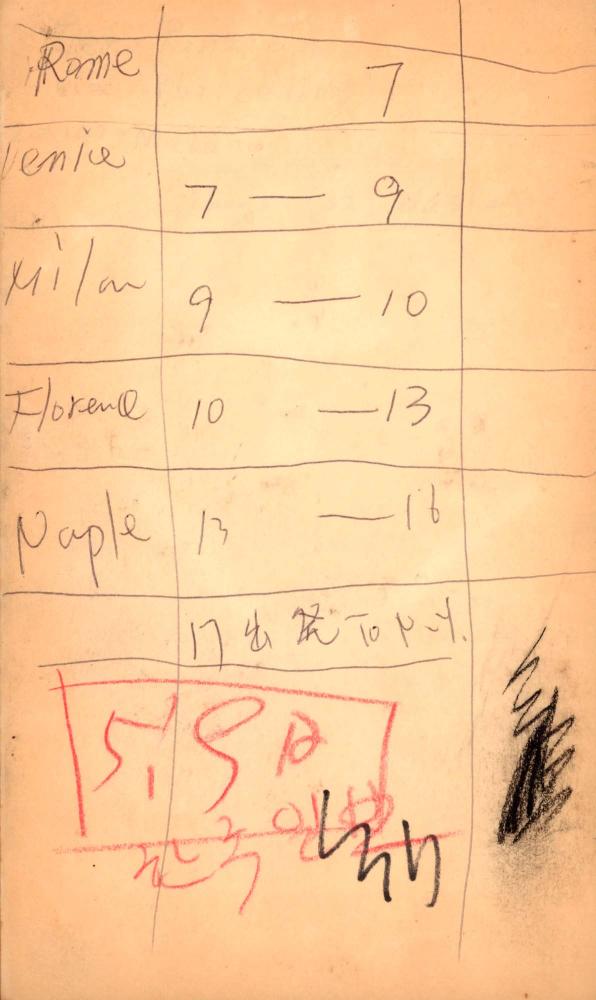 Rome 7
Venice 7 — 9
Milan 9 — 10
Florence 10 — 13
Naple 13 — 16
17 出発 To N.Y.
한국